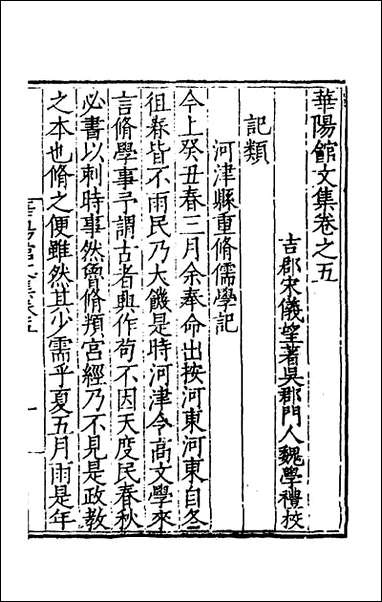 華陽館文集卷之五
吉郡宋儀望著吳郡門人魏學禮校
記類
河津縣重脩儒學記
今上癸丑春三月余奉命出按河東河東自冬
徂春皆不雨民乃大饑是時河津令高文學來
言脩學事予謂古者興作苟不因天度民春秋
必書以刺時事然魯脩頖宮經乃不見是政教
之本也脩之便雖然其少需乎夏五月雨是年